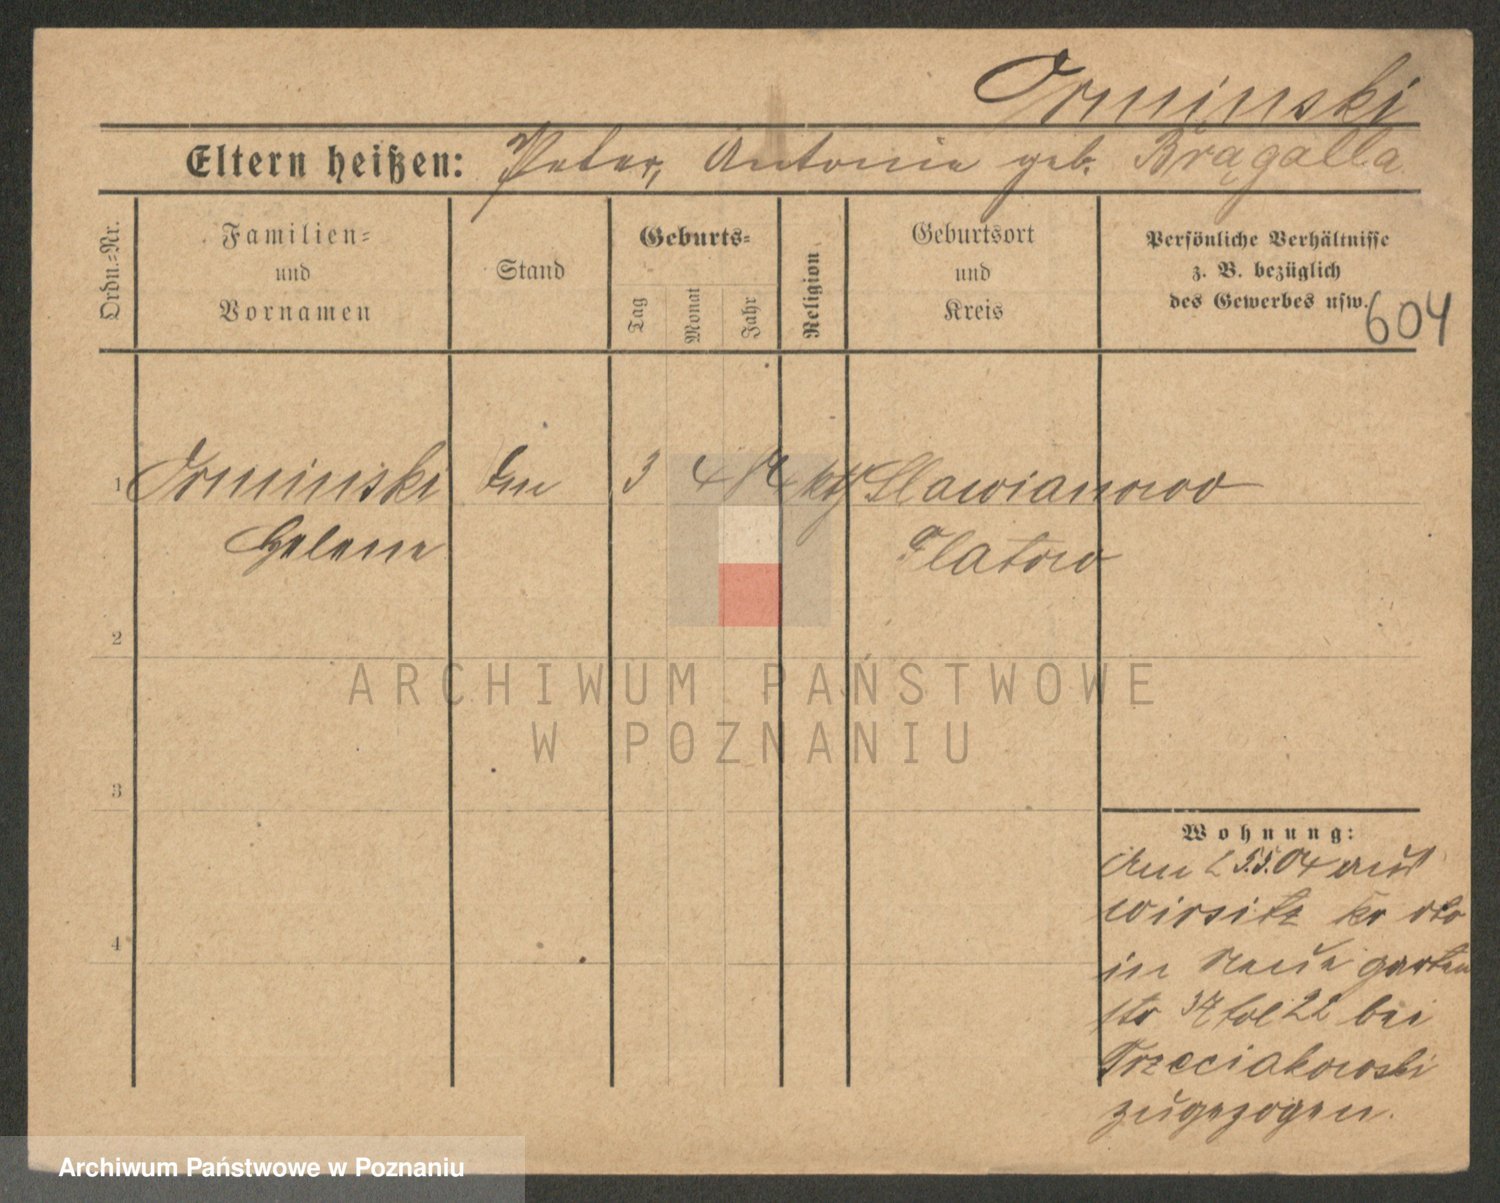 Orminski
Eltern heißen: Peter, Antonie geb. Brągalla
Ordn.=Nr.
Familien=
und
Vornamen
Stand
Geburts=
Tag
Monat
Jahr
Religion
Geburtsort
und
Kreis
Persönliche Verhältnisse
z. B. bezüglich
des Gewerbes usw.
604
1 Orminski 3 4 84 kth Slawianowo
Helene Flatow
2
3
4
Wohnung:
Am 25.5.04 aus
Wirsitz
in Neue garten
str 37 bei
Trzeciakowski
zugezogen.
ARCHIWUM PAŃSTWOWE
W POZNANIU
Archiwum Państwowe w Poznaniu